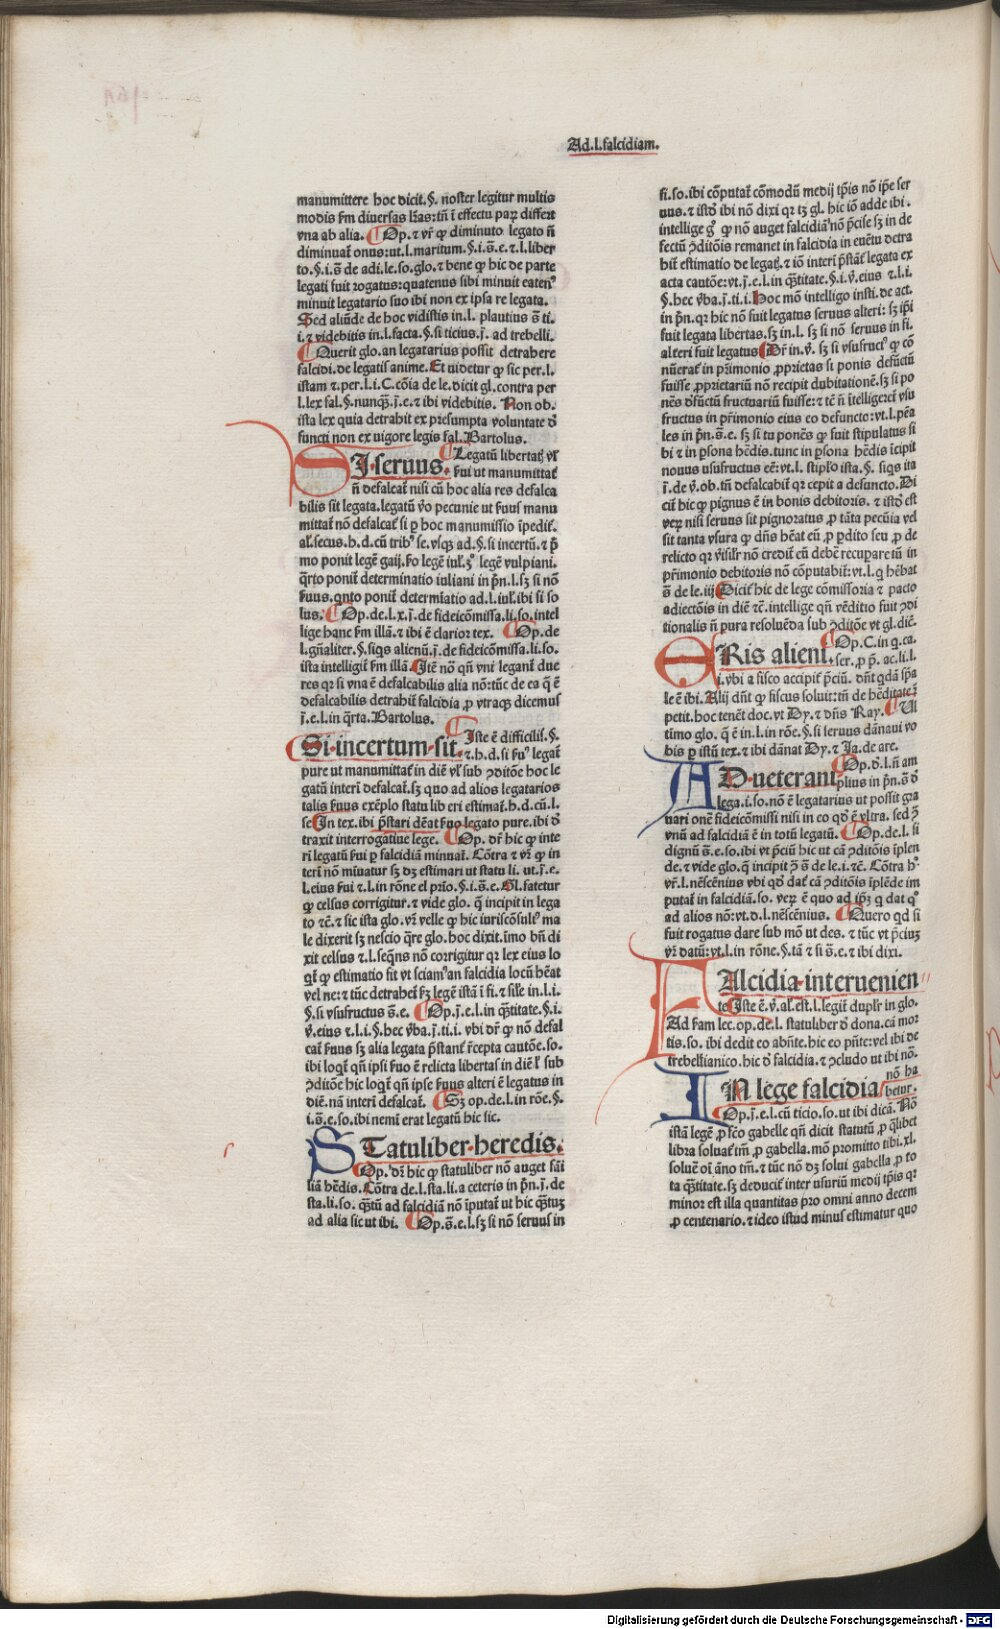 Ad.l.falcidiam.
manumittere hoc dicit.§. noster legitur multis
modis ẜm diuersas lr̄as:tn̄ ī effectu parꝝ differt
vna ab alia. ¶Op.⁊ vr̄ ꝙ diminuto legato n̄
diminuat̄ onus:ut.l.maritum.§.i.s̄.e.⁊.l.liber
to.§.i.s̄ de adi.le.so.glo.⁊ bene ꝙ hic de parte
legati fuit rogatus:quatenus sibi minuit eatenꝰ
minuit legatario suo ibi non ex ipsa re legata.
Sed aliūde de hoc vidistis in.l. plautius s̄ ti.
i.⁊ videbitis in.l.facta.§.si ticius.j̄. ad trebelli.
¶Querit glo.an legatarius possit detrahere
falcidi.de legatis anime.Et uidetur ꝙ sic per.l.
istam ⁊.per.l.i.C.cōia de le.dicit gl.contra per
l.lex fal.§.nunqꝫ.j̄.e.⁊ ibi videbitis. Non ob.
ista lex quia detrahit ex presumpta voluntate d̄
functi non ex uigore legis fal.Bartolus.
SI.seruus. ¶Legatū libertatꝭ vl̓
ẜui ut manumittat̄
n̄ defalcat̄ nisi cū hoc alia res defalca
bilis sit legata.legatū v̄o pecunie ut ẜuus manu
mittat̄ nō defalcat̄ si ꝑ hoc manumissio īpedit̄.
al̓.secus.h.d.cū tribꝰ se.vsqꝫ ad.§.si incertū.⁊ p̄
mo ponit legē gaij.ẜo legē iul̓.ʒꝰ legē vulpiani.
q̄rto ponit̄ determinatio iuliani in pn̄.l.sꝫ si nō
ẜuus.qnto ponit̄ determīatio ad.l.iul̓.ibi si so
lus. ¶Op.de.l.x.j̄.de fideicōmissa.li.so.intel
lige hanc ẜm illā.⁊ ibi ē clarior tex. ¶Op.de
l.gn̄aliter.§.siqs alienū.j̄.de fideicōmissa.li.so.
ista intelligit̄ ẜm illā.¶Itē nō qn̄ vni legant̄ due
res qꝛ si vna ē defalcabilis alia nō:tūc de ea q̄ ē
defalcabilis detrahit̄ falcidia ꝓ vtraqꝫ dicemus
j̄.e.l.in q̄rta.Bartolus.
Si.incertum.sit. ¶Iste ē difficilis.§.
⁊.h.d.si ẜuꝰ legat̄
pure ut manumittat̄ in diē vl̓ sub ꝯditōe hoc le
gatū interī defalcat̄.sꝫ quo ad alios legatarios
talis ẜuus exēplo statu lib eri estimat̄.h.d.cū.l.
se¶In tex.ibi p̄stari dēat ẜuo legato pure.ibi d̄
traxit interrogatiue lege. ¶Op. dr̄ hic ꝙ inte
rī legatū ẜui ꝑ falcidiā minuat̄. Cōtra ⁊ vr̄ ꝙ in
terī nō mīuatur sꝫ dꝫ estimari ut statu li. ut.j̄.e.
l.eius ẜui ⁊.l.in rōne el prīo.§.i.s̄.e.Gl.fatetur
ꝙ celsus corrigitur.⁊ vide glo. q̄ incipit in lega
to ⁊c̄.⁊ sic ista glo.vr̄ velle ꝙ hic iuriscōsultꝰ ma
le dixerit sꝫ nescio q̄re glo.hoc dixit.īmo bn̄ di
xit celsus ⁊.l.seqn̄s nō corrigitur qꝛ lex eius lo
qt̄ ꝙ estimatio fit vt sciamꝰ an falcidia locū hēat
vel ne:⁊ tūc detrahet̄ ẜꝫ legē istā ī fi.⁊ sil̓e in.l.i.
§.si vsufructus s̄.e. ¶Op.j̄.e.l.in q̄stitate.§.i.
v̄.eius ⁊.l.i.§.hec ṽba.j̄.ti.i. vbi dr̄ ꝙ nō defal
cat̄ ẜuus sꝫ alia legata p̄stant̄ r̄cepta cautōe.so.
ibi loqt̄ qn̄ ipsi ẜuo ē relicta libertas in diē l̓ sub
ꝯditōe hic loqt̄ qn̄ ipse ẜuus alteri ē legatus in
diē.nā interī defalcat̄. ¶Sꝫ op.de.l.in rōe.§.
i.s̄.e.so.ibi nemī erat legatū hic sic.
STatuliber.heredis.
¶Op.dr̄ hic ꝙ statuliber nō auget fāi
liā hēdis.Cōtra de.l.sta.li.a ceteris in pn̄.j̄.de
sta.li.so. q̄stū ad falcidiā nō īputat̄ ut hic q̄stuꝫ
ad alia sic ut ibi. ¶Op.s̄.e.l.sꝫ si nō seruus in
fi.so.ibi cōputat̄ cōmodū medij tp̄is nō ip̄e ser
uus.⁊ istd̄ ibi nō dixi qꝛ tꝫ gl. hic iō adde ibi.
intellige gͦ ꝙ nō auget falcidiā nō p̄cise sꝫ in de
fectū ꝯditōis remanet in falcidia in euētu detra
hit̄ estimatio de legatꝭ.⁊ iō interī p̄stāt̄ legata ex
acta cautōe:vt.j̄.e.l.in q̄stitate.§.i.v̄.eius ⁊.l.i.
§.hec ṽba.j̄.ti.i.Hoc mō intelligo insti.de act.
in pn̄.qꝛ hic nō fuit legatus seruus alteri: sꝫ ip̄i
fuit legata libertas.sꝫ in.l. sꝫ si nō seruus in fi.
alteri fuit legatus¶Dr̄ in.v̄. sꝫ si vsufrucꝰ ꝙ cō
nūerat̄ in pr̄imonio ꝓprietas si ponis defūctū
fuisse ꝓprietariū nō recipit dubitationē.sꝫ si po
nēs d̓fūctū fructuariū fuisse:⁊ tē n̄ ītelligerēt̄ vsu
fructus in pr̄imonio eius eo defuncto:vt.l.pēa
les in pn̄.s̄.e. sꝫ si tu ponēs ꝙ fuit stipulatus si
bi ⁊ in ꝑsona hēdis.tunc in ꝑsona hēdis īcipit
nouus usufructus eē:vt.l. stipl̓o ista.§. siqs ita
j̄.de ṽ.ob.tn̄ defalcabit̄ qꝛ cepit a defuncto.Di
cit̄ hic ꝙ pignus ē in bonis debitoris. ⁊ istd̄ est
veꝝ nisi seruus sit pignoratus ꝓ tāta pecūia vel
sit tanta vsura ꝙ dn̄s hēat eū ꝓ ꝑdito seu ꝓ de
relicto qꝛ v̓isil̓r nō credit̄ cū debē recupare tū in
pr̄imonio debitoris nō cōputabit̄:vt.l.q hēbat
s̄ de le.iij¶Dicit̄ hic de lege cōmissoria ⁊ pacto
adiectōis in diē ⁊c̄.intellige qn̄ vēditio fuit ꝯdi
tionalis n̄ pura resoluēda sub ꝯditōe vt gl.diē.
ERis alieni. ¶Op.C.in q.ca.
ser.ꝓ p̄. ac.li.l.
i.vbi a fisco accipit̄ p̄ciū. dn̄t gdā sp̄a
le ē ibi. Alij dn̄t ꝙ fiscus soluit:tn̄ de hēditate ī
petit.hoc tenēt doc.vt Dy.⁊ dn̄s Ray. ¶Ul
timo glo. q̄ ē in.l.in rōe.§.si seruus dānaui vo
bis ꝑ istū tex.⁊ ibi dānat Dy.⁊ Ja.de are.
AD.ueterani. ¶Op.d̓.l.n̄ am
plius in pn̄.s̄ d̓
lega.i.so.nō ē legatarius ut possit gra
uari onē fideicōmissi nisi in eo qd̓ ē vltra. sed ꝯ̄
vnū ad falcidiā ē in totū legatū. ¶Op.de.l. si
dignū s̄.e.so.ibi vt p̄ciū hic ut cā ꝯditōis īplen
de.⁊ vide glo.q̄ incipit ꝯ̄ s̄ de le.i.⁊c̄. Cōtra hꝰ
vr̄.l.nēscēnius vbi qd̓ dat̄ cā ꝯditōis īplēde im
putat̄ in falcidiā.so. veꝝ ē quo ad ip̄ꝫ q dat qͦ
ad alios nō:vt.d.l.nēscēnius. ¶Quero qd si
fuit rogatus dare sub mō ut des. ⁊ tūc vt p̄ciuꝫ
vr̄ datū:vt.l.in rōne.§.tā ⁊ si s̄.e.⁊ ibi dixi.
FAlcidia.interuenien
te¶Iste ē.v̄.al.est.l.legit̄ duplr̄ in glo.
Ad ẜam lec.op.de.l. statuliber d̓ dona.cā mor
tis.so. ibi dedit eo abn̄te.hic eo pn̄te:vel ibi de
trebellianico.hic d̓ falcidia.⁊ ꝯcludo ut ibi nō.
nō ha
IN lege falcidia betur.
¶Op.j̄.e.l.cū ticio.so.ut ibi dicā.Nō
istā legē ꝓ fc̄o gabelle qn̄ dicit statutū ꝓ q̄libet
libra soluat̄ tm̄ ꝓ gabella.mō promitto tibi.xl.
soluē oī āno tm̄.⁊ tūc nō dꝫ solui gabella ꝓ to
ta q̄stitate.sꝫ deducit̄ inter usuriū medij tp̄is qꝛ
minor est illa quantitas pro omni anno decem
ꝓ centenario.⁊ ideo istud minus estimatur quo
Digitalisierung gefördert durch die Deutsche Forschungsgemeinschaft - DFG